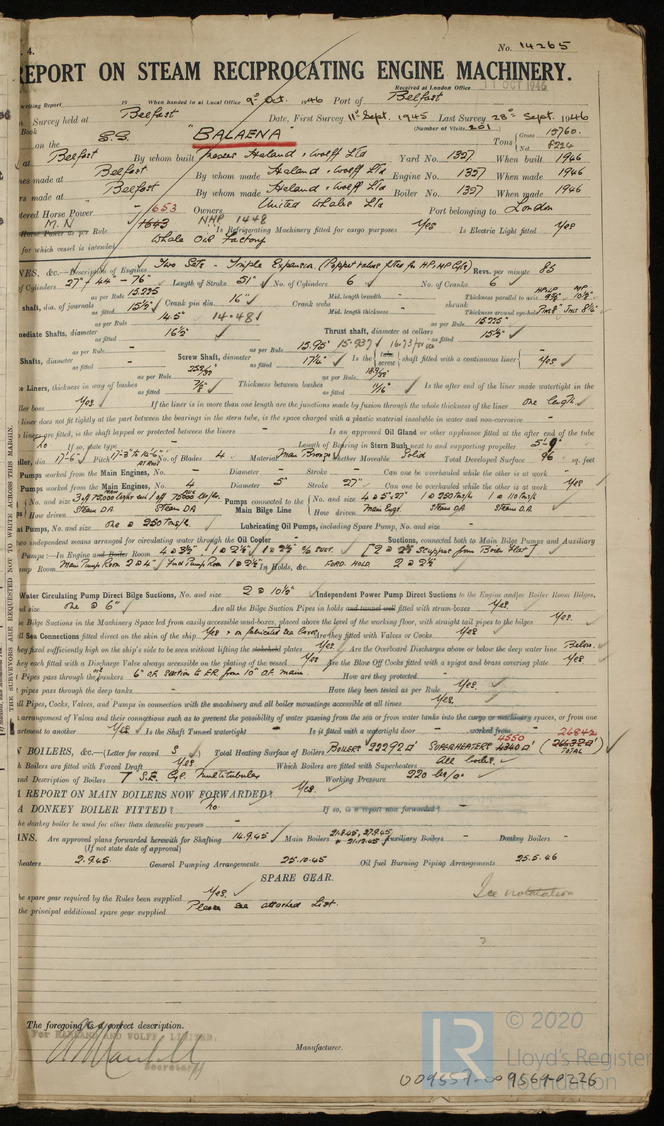 . 4.
No. 14265
REPORT ON STEAM RECIPROCATING ENGINE MACHINERY.
Received at London Office 11 OCT 1946
writing Report 19 When handed in at Local Office 2nd Oct. 1946 Port of Belfast
Survey held at Belfast Date, First Survey 11th Sept. 1945 Last Survey 28th Sept. 1946
Book (Number of Visits 201)
on the S.S. "BALAENA" Tons Gross 15760. Nett 8224
at Belfast By whom built Messrs Harland & Wolff Ltd Yard No. 1327 When built 1946
nes made at Belfast By whom made Harland & Wolff Ltd Engine No. 1327 When made 1946
rs made at Belfast By whom made Harland & Wolff Ltd Boiler No. 1327 When made 1946
ered Horse Power - 653 Owners United Whalers Ltd Port belonging to London
M.N 1643 NHP 1448
Horse Power as per Rule Is Refrigerating Machinery fitted for cargo purposes Yes Is Electric Light fitted Yes
for which vessel is intended Whale Oil Factory
NES, &c.—Description of Engines Two Sets - Triple Expansion (Poppet valves fitted for HP. MP Cyls) Revs. per minute 85
of Cylinders 27" 44" - 76" Length of Stroke 51" No. of Cylinders 6 No. of Cranks 6
shaft, dia. of journals as per Rule 15.225 as fitted 15½ Crank pin dia. 16" Crank webs Mid. length breadth - Mid. length thickness - shrunk Thickness parallel to axis Thickness around eyehole
mediate Shafts, diameter as per Rule 14.5 14.481 as fitted 16½ Thrust shaft, diameter at collars as per Rule 15.225 as fitted 15½
Shafts, diameter as per Rule - as fitted - Screw Shaft, diameter as per Rule 15.95 15.937 as fitted 17¼ Is the { tube screw } shaft fitted with a continuous liner { Yes
e Liners, thickness in way of bushes as per Rule as fitted 7/8 Thickness between bushes as per Rule as fitted Is the after end of the liner made watertight in the
ller boss Yes If the liner is in more than one length are the junctions made by fusion through the whole thickness of the liner one length
liner does not fit tightly at the part between the bearings in the stern tube, is the space charged with a plastic material insoluble in water and non-corrosive -
liners are fitted, is the shaft lapped or protected between the liners - Is an approved Oil Gland or other appliance fitted at the after end of the tube
no If so, state type - Length of Bearing in Stern Bush next to and supporting propeller 5'-9"
ller, dia. 17'-6" Pitch No. of Blades 4 Material Man Bronze whether Moveable Solid Total Developed Surface 96 sq. feet
Pumps worked from the Main Engines, No. - Diameter - Stroke - Can one be overhauled while the other is at work -
Pumps worked from the Main Engines, No. 4 Diameter 5" Stroke 27" Can one be overhauled while the other is at work Yes
No. and size Pumps connected to the Main Bilge Line { No. and size 4 @ 5"×27" 1 @ 250 Tons/h 1 @ 110 Tons/h
How driven Steam DA Steam DA How driven Main Engs. Steam D.A Steam D.A.
st Pumps, No. and size one @ 250 Tons/h. Lubricating Oil Pumps, including Spare Pump, No. and size -
wo independent means arranged for circulating water through the Oil Cooler - Suctions, connected both to Main Bilge Pumps and Auxiliary
Pumps:—In Engine and Boiler Room 4 @ 3½"
ump Room In Holds, &c. FORD. HOLD 2 @ 2½
Water Circulating Pump Direct Bilge Suctions, No. and size 2 @ 10½" Independent Power Pump Direct Suctions to the Engine and/or Boiler Room Bilges,
nd size one @ 6" Are all the Bilge Suction Pipes in holds and tunnel well fitted with strum-boxes Yes.
e Bilge Suctions in the Machinery Space led from easily accessible mud-boxes, placed above the level of the working floor, with straight tail pipes to the bilges Yes.
ll Sea Connections fitted direct on the skin of the ship Yes, & on fabricated sea boxes Are they fitted with Valves or Cocks Yes
hey fixed sufficiently high on the ship's side to be seen without lifting the stokehold plates Yes. Are the Overboard Discharges above or below the deep water line Below.
hey each fitted with a Discharge Valve always accessible on the plating of the vessel Yes Are the Blow Off Cocks fitted with a spigot and brass covering plate Yes
Pipes pass through the bunkers 6" O.F. suction to E.R. from 10" O.F. main How are they protected -
pipes pass through the deep tanks - Have they been tested as per Rule Yes.
ll Pipes, Cocks, Valves, and Pumps in connection with the machinery and all boiler mountings accessible at all times Yes.
arrangement of Valves and their connections such as to prevent the possibility of water passing from the sea or from water tanks into the cargo or machinery spaces, or from one
artment to another Yes Is the Shaft Tunnel watertight - Is it fitted with a watertight door - worked from -
N BOILERS, &c.—(Letter for record S ) Total Heating Surface of Boilers BOILERS 22292 SUPERHEATERS 4550 4340 (26842 26632 TOTAL)
ch Boilers are fitted with Forced Draft Yes Which Boilers are fitted with Superheaters All boilers.
nd Description of Boilers 7 S.E. Cyl. Multitubular Working Pressure 220 lbs/□"
A REPORT ON MAIN BOILERS NOW FORWARDED? Yes.
A DONKEY BOILER FITTED? No. If so, is a report now forwarded? -
he donkey boiler be used for other than domestic purposes -
ANS. Are approved plans forwarded herewith for Shafting 14.9.45 Main Boilers 21.8.45, 27.9.45, & 21.12.45 Auxiliary Boilers - Donkey Boilers -
(If not state date of approval)
heaters 2.9.45 General Pumping Arrangements 25.10.45 Oil fuel Burning Piping Arrangements 25.5.46
SPARE GEAR.
he spare gear required by the Rules been supplied Yes.
he principal additional spare gear supplied Please see attached List.
The foregoing is a correct description.
For HARLAND AND WOLFF, LIMITED.
Secretary
Manufacturer.
THE SURVEYORS ARE REQUESTED NOT TO WRITE ACROSS THIS MARGIN.
© 2020
LR
Lloyd's Register
Foundation
009557-009564-0226